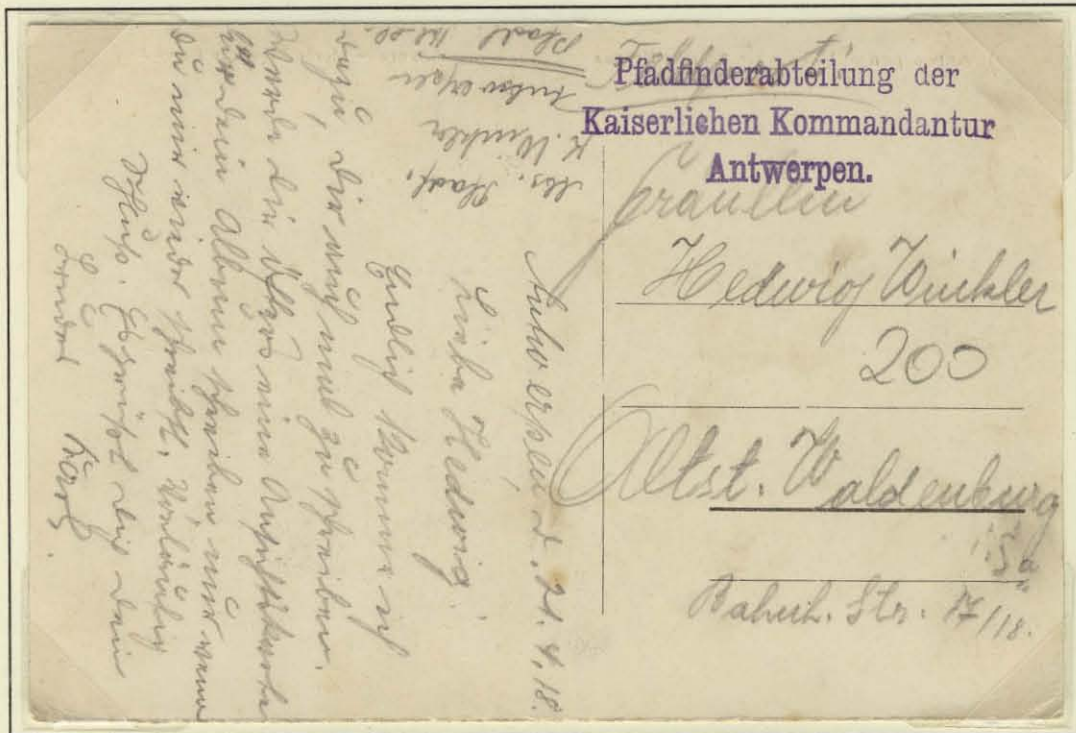 Pfadfinderabteilung der
Kaiserlichen Kommandantur
Antwerpen.
Fräulein
Hedwig Winkler
200
Altst. Waldenburg
i. Sa
Bahnh. Str. 17/18.
Abs. Pfadf.
K. Winkler
Antwerpen
Antwerpen, d. 21.4.18.
Liebe Hedwig.
Endlich komme ich
dazu, Dir auch mal zu schreiben.
Werde dir öfters eine Ansichtskarte
für dein Album schreiben nur wenn
du mir wieder schreibst. Vorläufig
Schluß. Es grüßt dich dein
Bruder
Karl